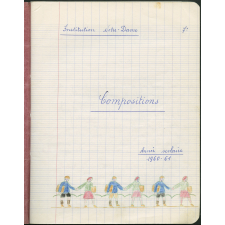 Institution Notre-Dame
Compositions
Année scolaire
1960-61